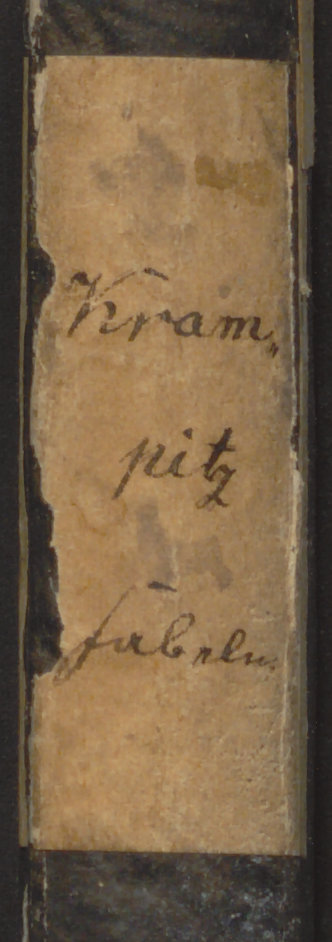 Kram„
pitz
Fabeln.